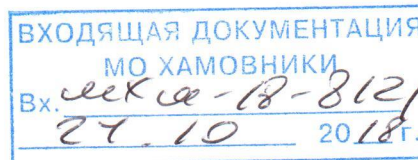 ВХОДЯЩАЯ ДОКУМЕНТАЦИЯ
МО ХАМОВНИКИ
Вх. МХа-18-812/
24. 10 2018 г.